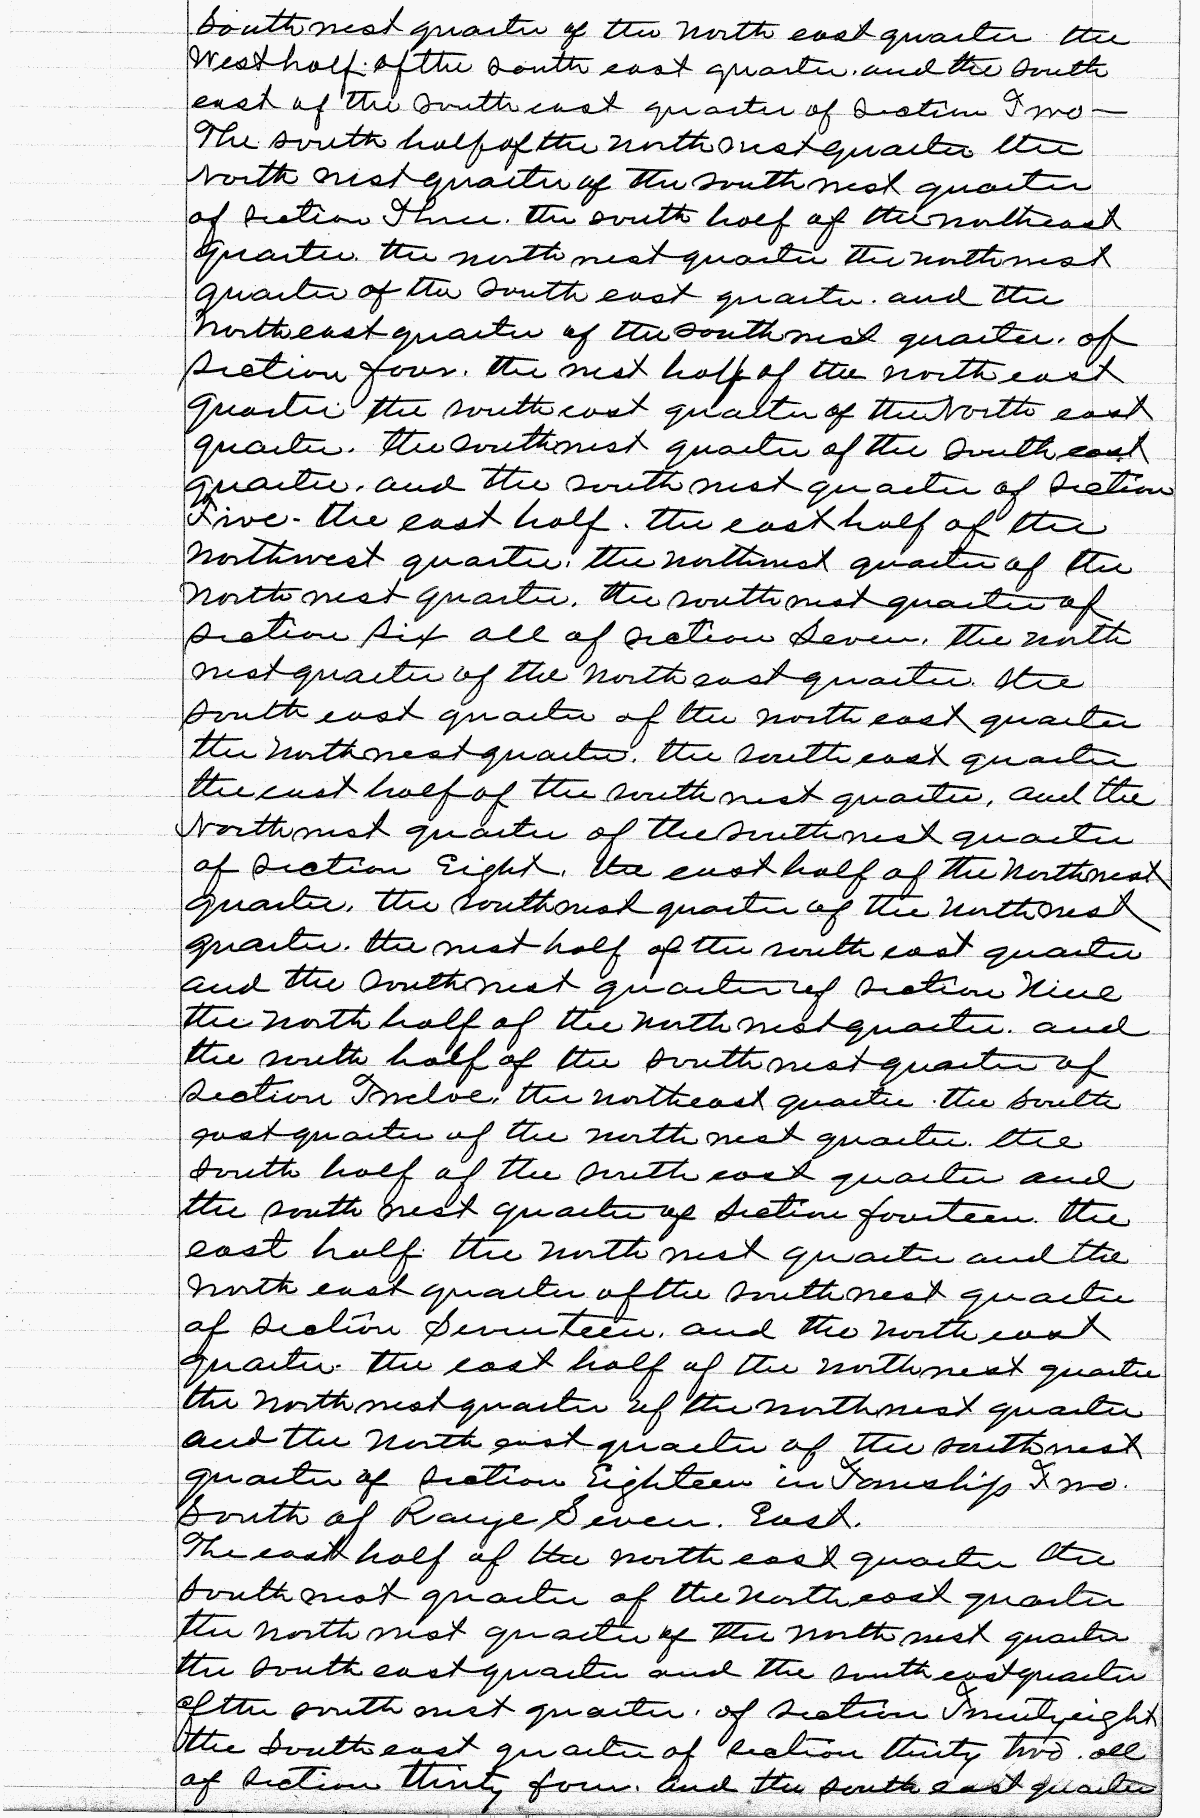 Southwest quarter of the North east quarter the
West half. of the south east quarter. and the south
east of the South east quarter of section Two —
The south half of the north west quarter the
North west quarter of the southwest quarter
of section Three. the south half of the northeast
quarter. the north west quarter the northwest
quarter of the South east quarter. and the
Northeast quarter of the southwest quarter. of
section four. the west half of the north east
quarter the south east quarter of the North east
quarter. the southwest quarter of the south east
quarter. and the south west quarter of section
Five - the east half. the east half of the
Northwest quarter. the northwest quarter of the
North west quarter. the southwest quarter of
section six all of section Seven. the north
west quarter of the North east quarter. the
south east quarter of the north east quarter
the North west quarter. the south east quarter
the east half of the south west quarter. and the
North west quarter of the southwest quarter
of section Eight. the east half of the Northwest
quarter. the southwest quarter of the Northwest
quarter. the west half of the south east quarter
and the southwest quarter of section Nine
the North half of the North west quarter. and
the south half of the south west quarter of
section Twelve. the northeast quarter. the South
east quarter of the north west quarter. the
South half of the south east quarter and
the south west quarter of section fourteen. the
east half. the North west quarter and the
North east quarter of the south west quarter
of section Seventeen. and the North east
quarter. the east half of the northwest quarter
the North west quarter of the northwest quarter
and the North east quarter of the southwest
quarter of section Eighteen in Township Two.
South of Range Seven. East.
The east half of the north east quarter the
south west quarter of the North east quarter
the North west quarter of the North west quarter
the south east quarter and the south east quarter
of the south west quarter. of section Twenty eight
the South east quarter of section thirty two. all
of section thirty four. and the south east quarter